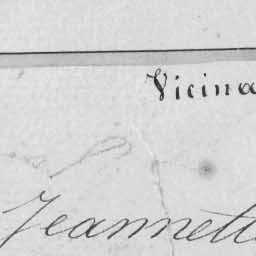 Vicina
Jeannett